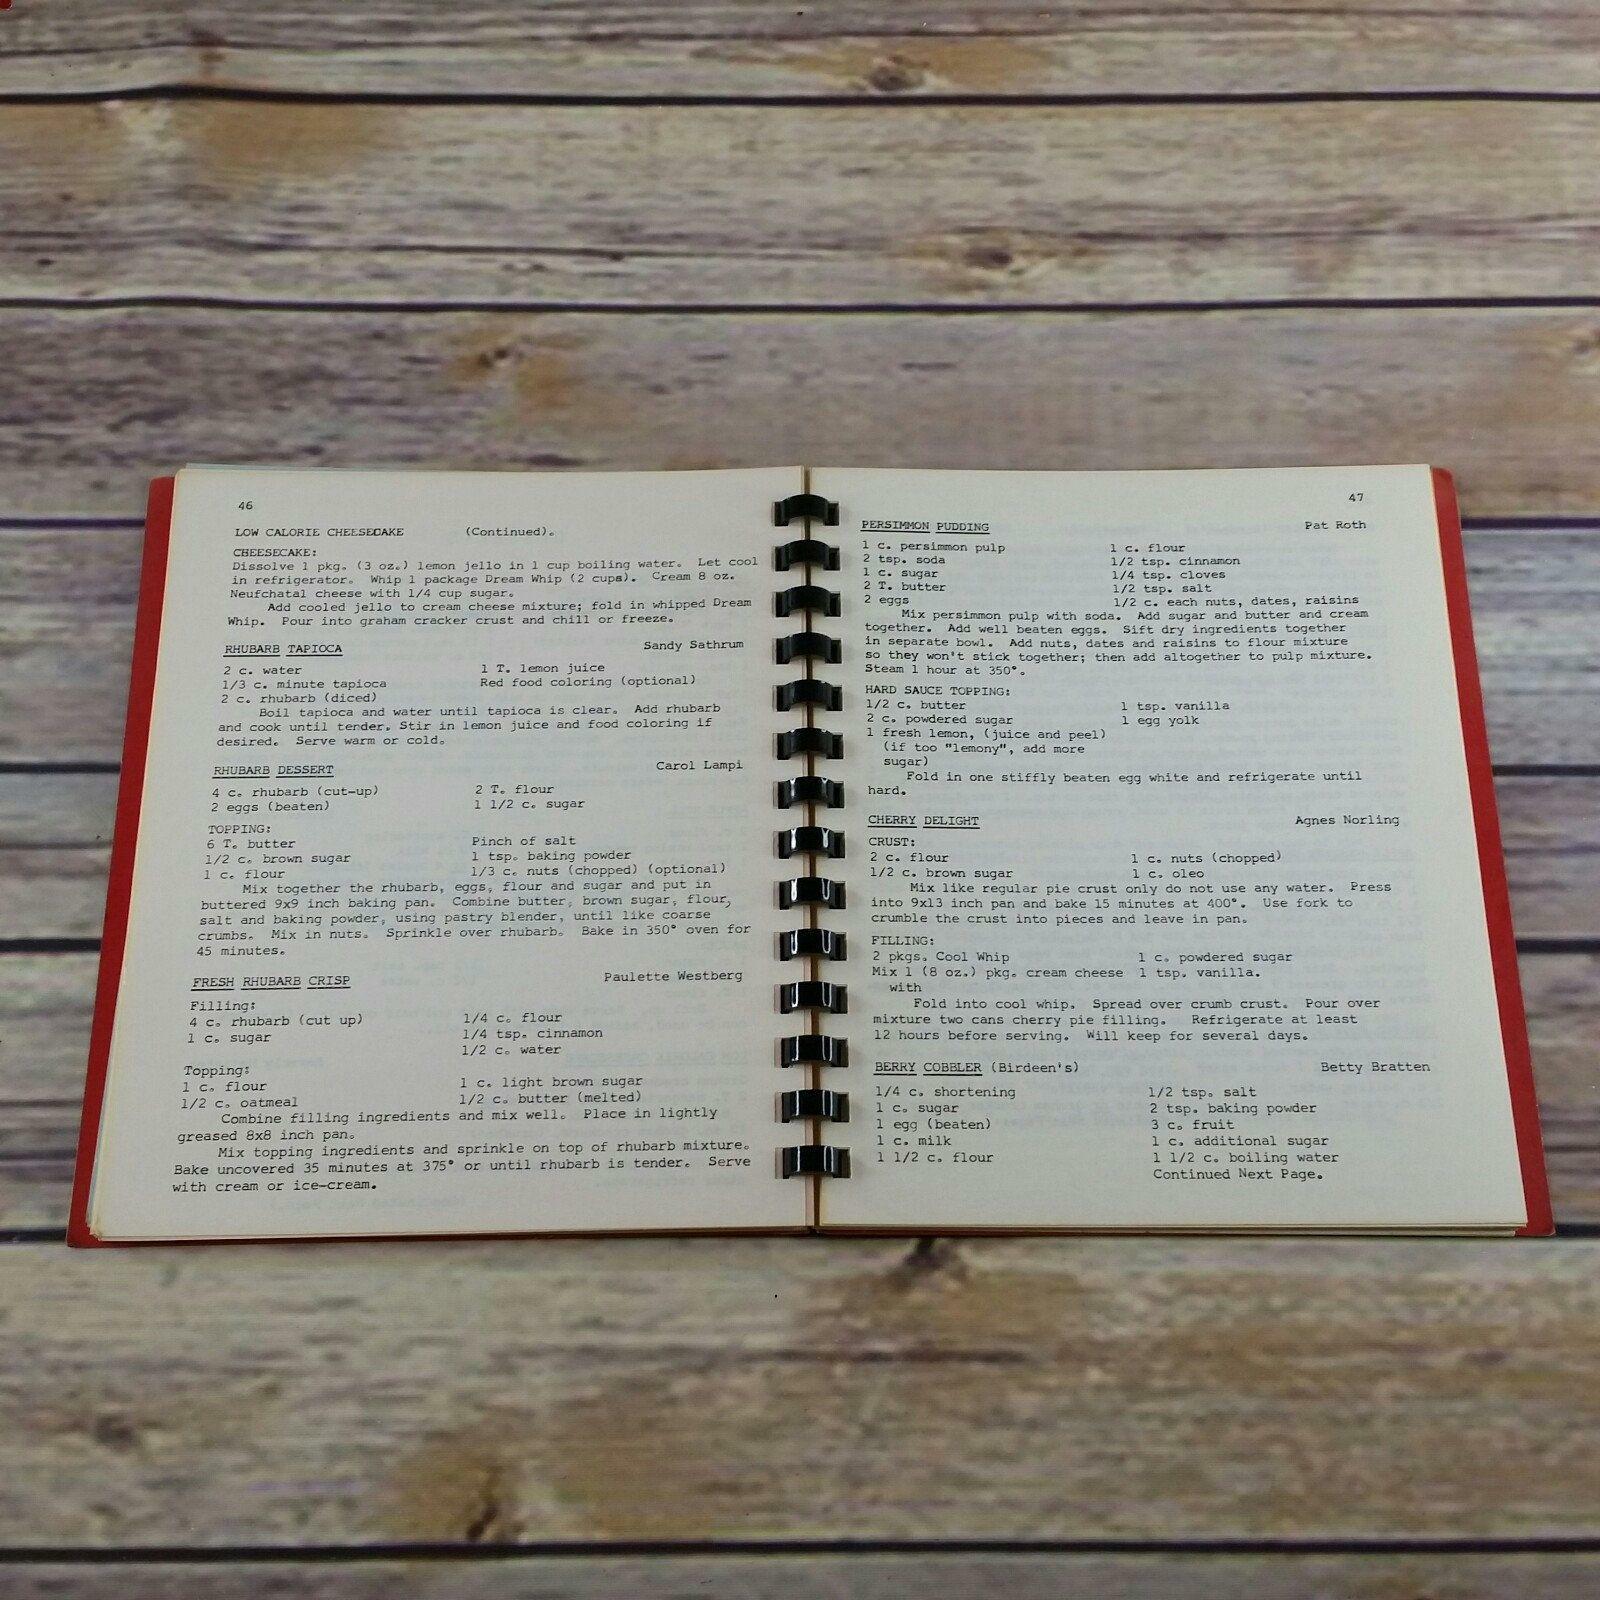 46
LOW CALORIE CHEESECAKE (Continued).
CHEESECAKE:
Dissolve 1 pkg. (3 oz.) lemon jello in 1 cup boiling water. Let cool
in refrigerator. Whip 1 package Dream Whip (2 cups). Cream 8 oz.
Neufchatal cheese with 1/4 cup sugar.
Add cooled jello to cream cheese mixture; fold in whipped Dream
Whip. Pour into graham cracker crust and chill or freeze.
RHUBARB TAPIOCA Sandy Sathrum
2 c. water 1 T. lemon juice
1/3 c. minute tapioca Red food coloring (optional)
2 c. rhubarb (diced)
Boil tapioca and water until tapioca is clear. Add rhubarb
and cook until tender. Stir in lemon juice and food coloring if
desired. Serve warm or cold.
RHUBARB DESSERT Carol Lampi
4 c. rhubarb (cut-up) 2 T. flour
2 eggs (beaten) 1 1/2 c. sugar
TOPPING:
6 T. butter Pinch of salt
1/2 c. brown sugar 1 tsp. baking powder
1 c. flour 1/3 c. nuts (chopped) (optional)
Mix together the rhubarb, eggs, flour and sugar and put in
buttered 9x9 inch baking pan. Combine butter, brown sugar, flour,
salt and baking powder, using pastry blender, until like coarse
crumbs. Mix in nuts. Sprinkle over rhubarb. Bake in 350° oven for
45 minutes.
FRESH RHUBARB CRISP Paulette Westberg
Filling:
4 c. rhubarb (cut up) 1/4 c. flour
1 c. sugar 1/4 tsp. cinnamon
1/2 c. water
Topping:
1 c. flour 1 c. light brown sugar
1/2 c. oatmeal 1/2 c. butter (melted)
Combine filling ingredients and mix well. Place in lightly
greased 8x8 inch pan.
Mix topping ingredients and sprinkle on top of rhubarb mixture.
Bake uncovered 35 minutes at 375° or until rhubarb is tender. Serve
with cream or ice-cream.
47
PERSIMMON PUDDING Pat Roth
1 c. persimmon pulp 1 c. flour
2 tsp. soda 1/2 tsp. cinnamon
1 c. sugar 1/4 tsp. cloves
2 T. butter 1/2 tsp. salt
2 eggs 1/2 c. each nuts, dates, raisins
Mix persimmon pulp with soda. Add sugar and butter and cream
together. Add well beaten eggs. Sift dry ingredients together
in separate bowl. Add nuts, dates and raisins to flour mixture
so they won't stick together; then add altogether to pulp mixture.
Steam 1 hour at 350°.
HARD SAUCE TOPPING:
1/2 c. butter 1 tsp. vanilla
2 c. powdered sugar 1 egg yolk
1 fresh lemon, (juice and peel)
(if too "lemony", add more
sugar)
Fold in one stiffly beaten egg white and refrigerate until
hard.
CHERRY DELIGHT Agnes Norling
CRUST:
2 c. flour 1 c. nuts (chopped)
1/2 c. brown sugar 1 c. oleo
Mix like regular pie crust only do not use any water. Press
into 9x13 inch pan and bake 15 minutes at 400°. Use fork to
crumble the crust into pieces and leave in pan.
FILLING:
2 pkgs. Cool Whip 1 c. powdered sugar
Mix 1 (8 oz.) pkg. cream cheese 1 tsp. vanilla.
with
Fold into cool whip. Spread over crumb crust. Pour over
mixture two cans cherry pie filling. Refrigerate at least
12 hours before serving. Will keep for several days.
BERRY COBBLER (Birdeen's) Betty Bratten
1/4 c. shortening 1/2 tsp. salt
1 c. sugar 2 tsp. baking powder
1 egg (beaten) 3 c. fruit
1 c. milk 1 c. additional sugar
1 1/2 c. flour 1 1/2 c. boiling water
Continued Next Page.